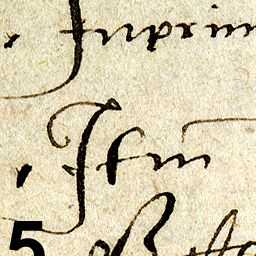 Inprim
Itm
5